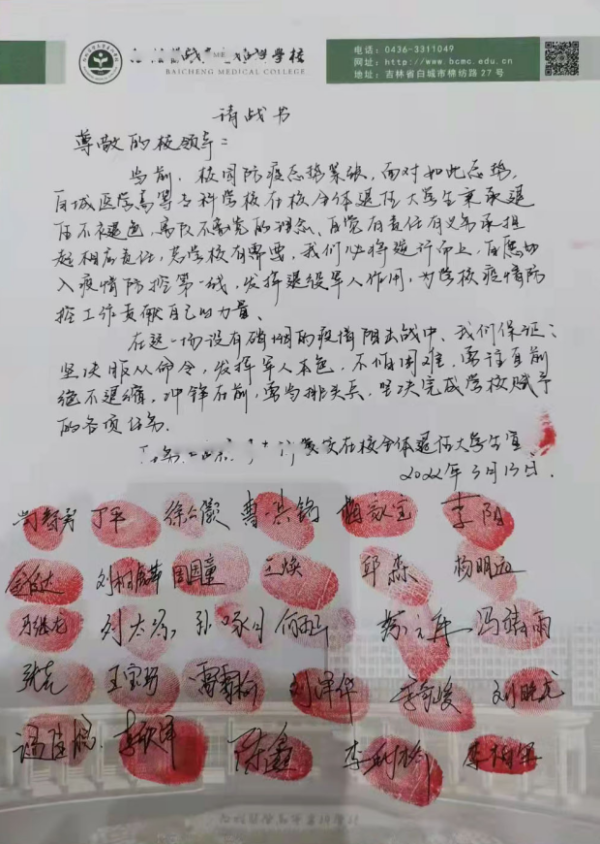 学校
BAICHENG MEDICAL COLLEGE
电话：0436-3311049
网址：http://www.bcmc.edu.cn
地址：吉林省白城市棉纺路27号
请战书
尊敬的校领导：
当前，校园防疫态势紧张，面对如此态势，
白城医学高等专科学校在校全体退伍大学生秉承退
伍不褪色，离队不离党的理念、自觉有责任有义务承担
起相应责任，若学校有需要，我们必将逆行而上，自愿加
入疫情防控第一线，发挥退役军人作用，为学校疫情防
控工作贡献自己的力量。
在这一场没有硝烟的疫情阻击战中、我们保证：
坚决服从命令，发挥军人本色，不怕困难，勇往直前
绝不退缩，冲锋在前，勇当排头兵，坚决完成学校赋予
的各项任务。
在校全体退伍大学生宣
2022年3月13日.
丁平 曹洪铭 李阳
周国童 王焕 邱淼 杨明
刘太源 何 冯 雨
王宝 刘泽华 李 俊 刘晓龙
李 泽 陈鑫 李 李柏军